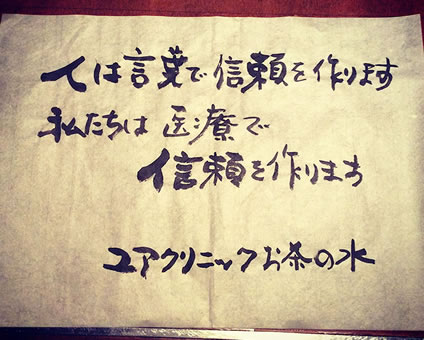 人は言葉で信頼を作ります
私たちは医療で
信頼を作ります
ユアクリニックお茶の水